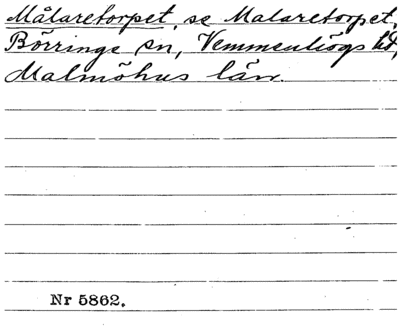 Målaretorpet, se Malaretorpet,
Börringe sn, Vemmenhögs hd,
Malmöhus län.
Nr 5862.